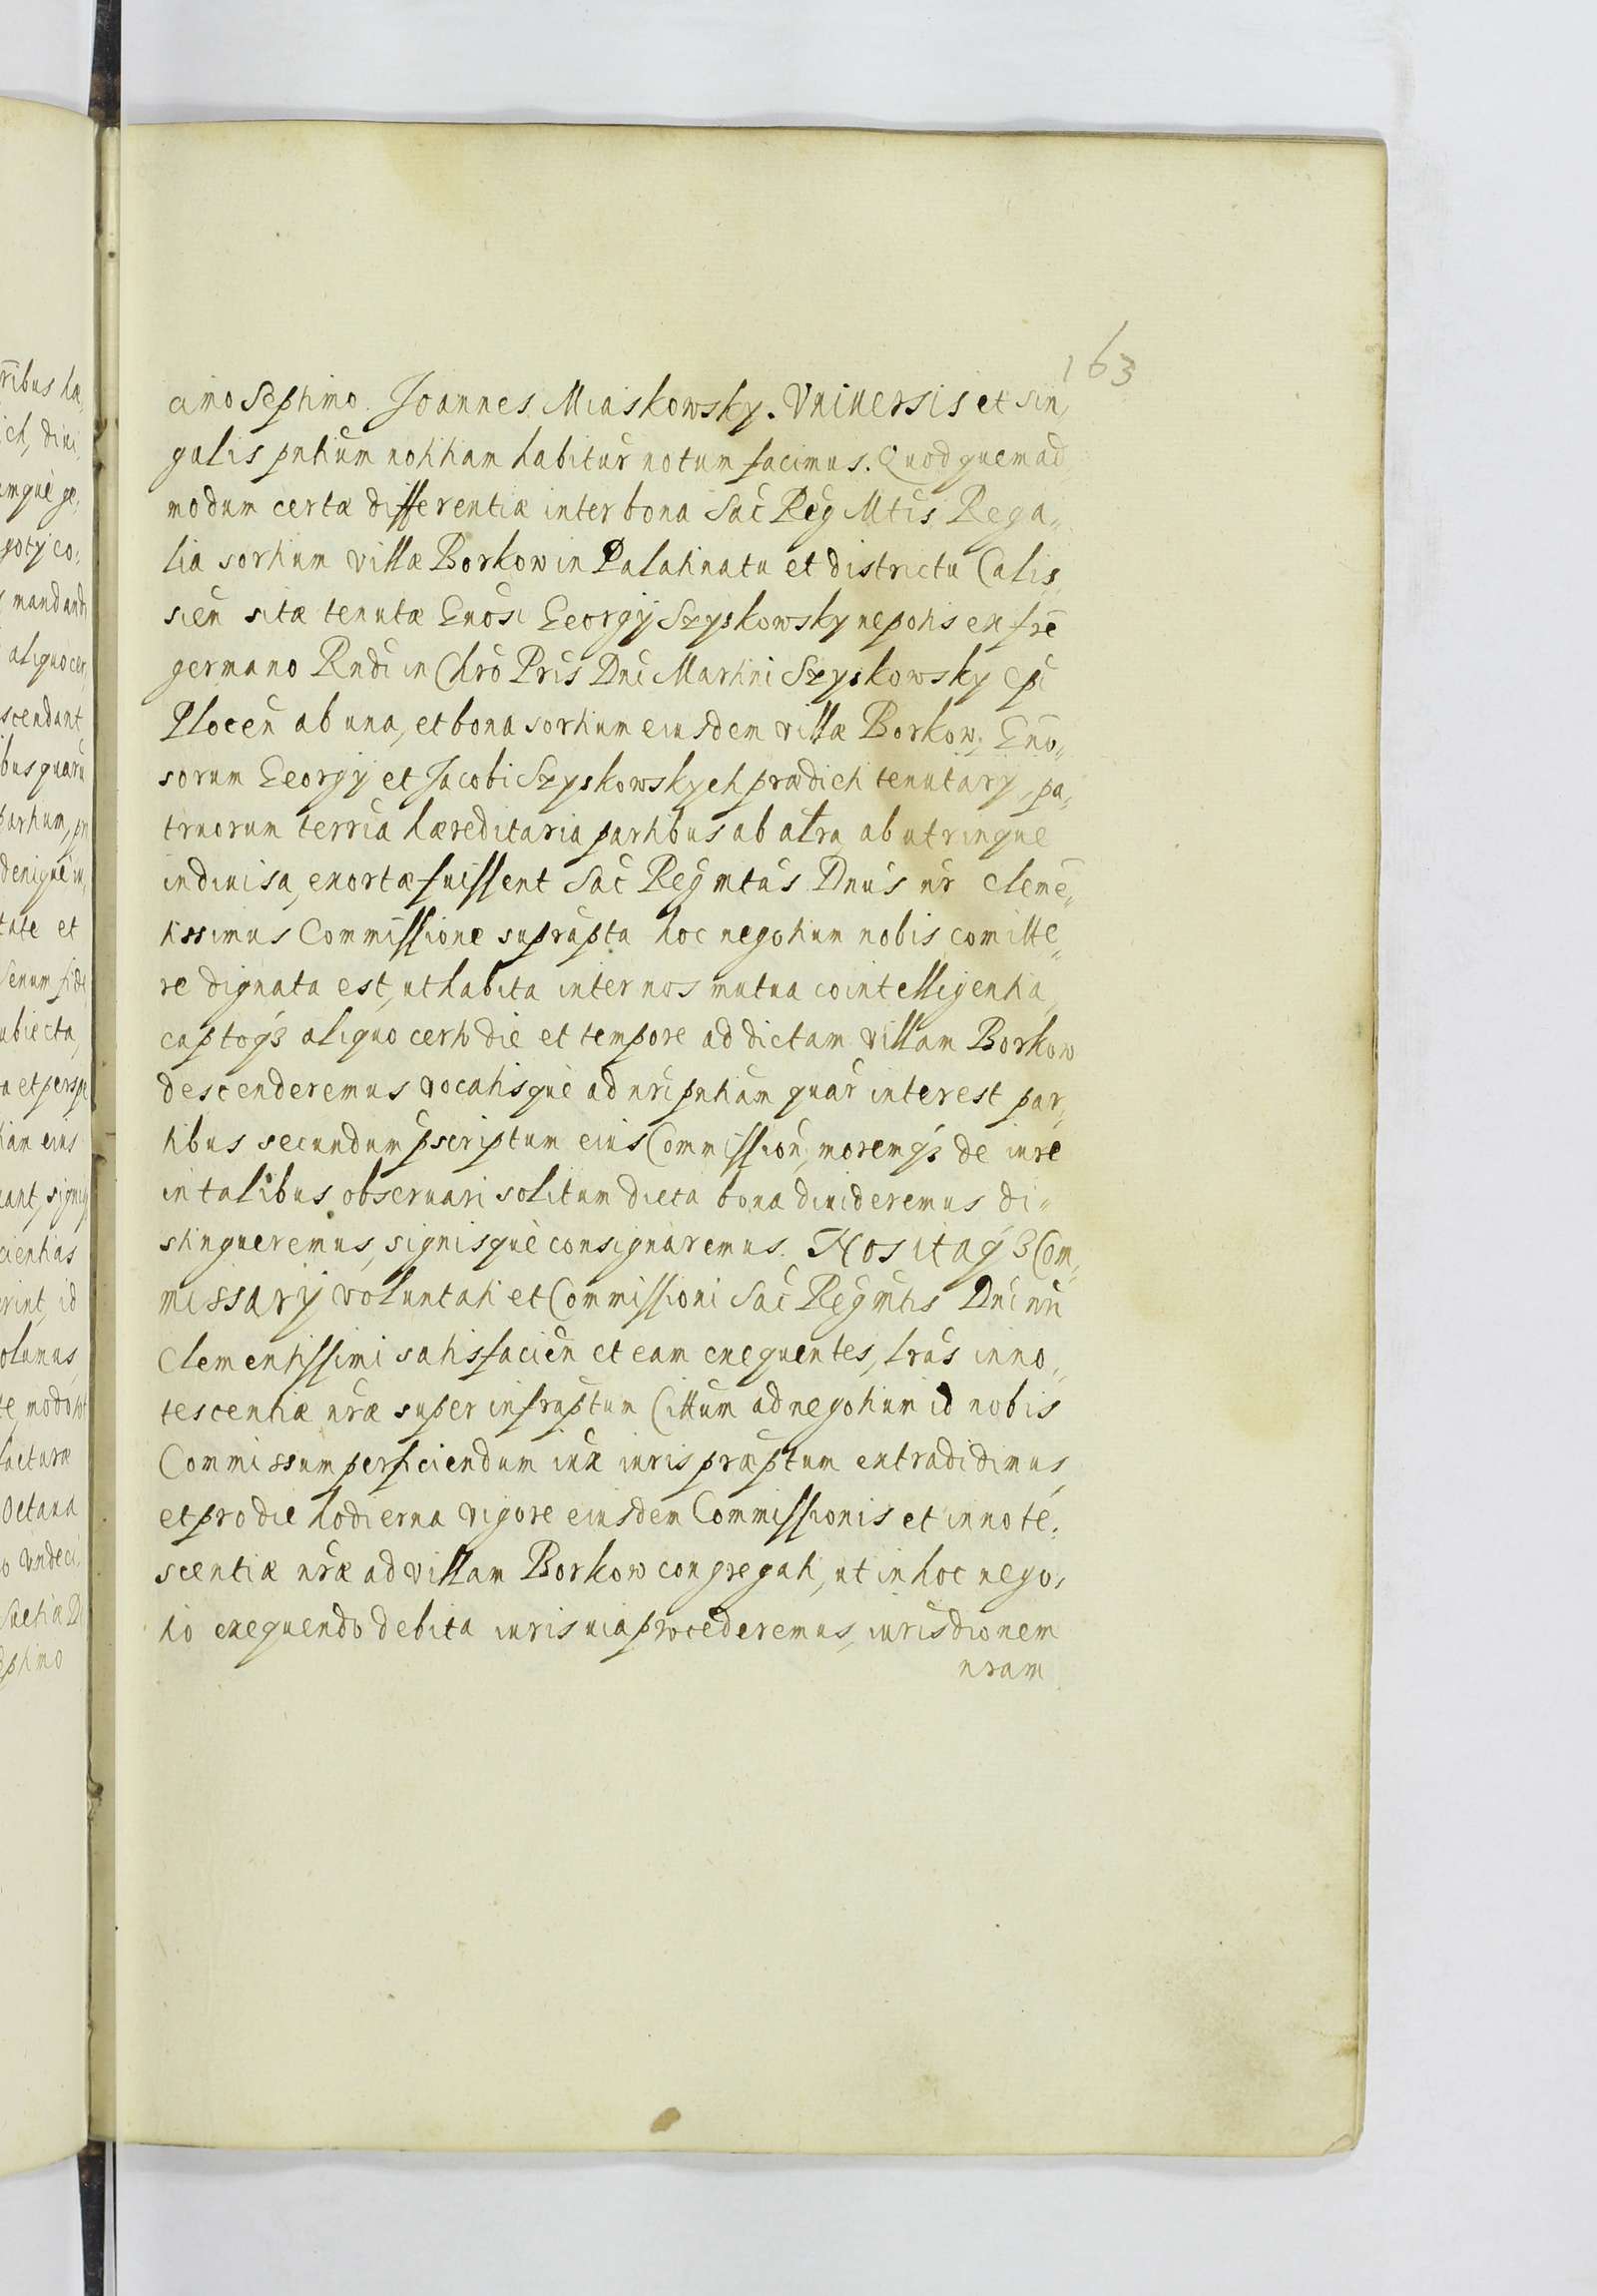 163
cimo Septimo. Joannes Miaskowsky. Vniuersis et sin,
gulis pntium notitiam habitur notum facimus. Quod quem ad,
modum certæ differentiæ inter bona Sac Reg Mtis Rega,,
lia sortium villæ Borkow in Palatinatu et districtu Calis,
sien sitæ tenutæ Gnosi Georgij Szyskowsky nepotis ex fre
germano Rndi in Chro Pris Dni Martini Szyskowsky Epi
Plocen ab una, et bona sortium eiusdem villæ Borkow, Gno,,
sorum Georgij et Jacobi Szyskowskych prædicti tenutarij, pa,,
truorum terria hæreditaria partibus ab altra, ab utrinque
indiuisa, exortæ fuissent Sac Reg mtas Dnus nr cleme,,
tissimus Commissione suprapta hoc negotium nobis comitte,,
re dignata est, ut habita inter nos mutua cointelligentia,
captoq3 aliquo certo die et tempore ad dictam villam Borkow
descenderemus vocatisque ad nri pntiam quar interest par,
tibus secundum pscriptum eius Commission, moremq3 de iure
in talibus obseruari solitum dicta bona diuideremus di,,
stingueremus, signisque consignaremus. Nos itaq3 Com,,
missarij voluntati et Commissioni Sac Reg mtis Dni nri
Clementissimi satisfacien et eam exequentes, lras inno,,
tescentiæ nræ super infraptum Cittum ad negotium id nobis
Commissum perficiendum iux iuris præptum extradidimus,
et pro die hodierna vigore eiusdem Commissionis et innote,
scentiæ nræ ad villam Borkow congregati, ut in hoc nego,
tio exequendo debita iuris uia procederemus, iurisdionem
nram